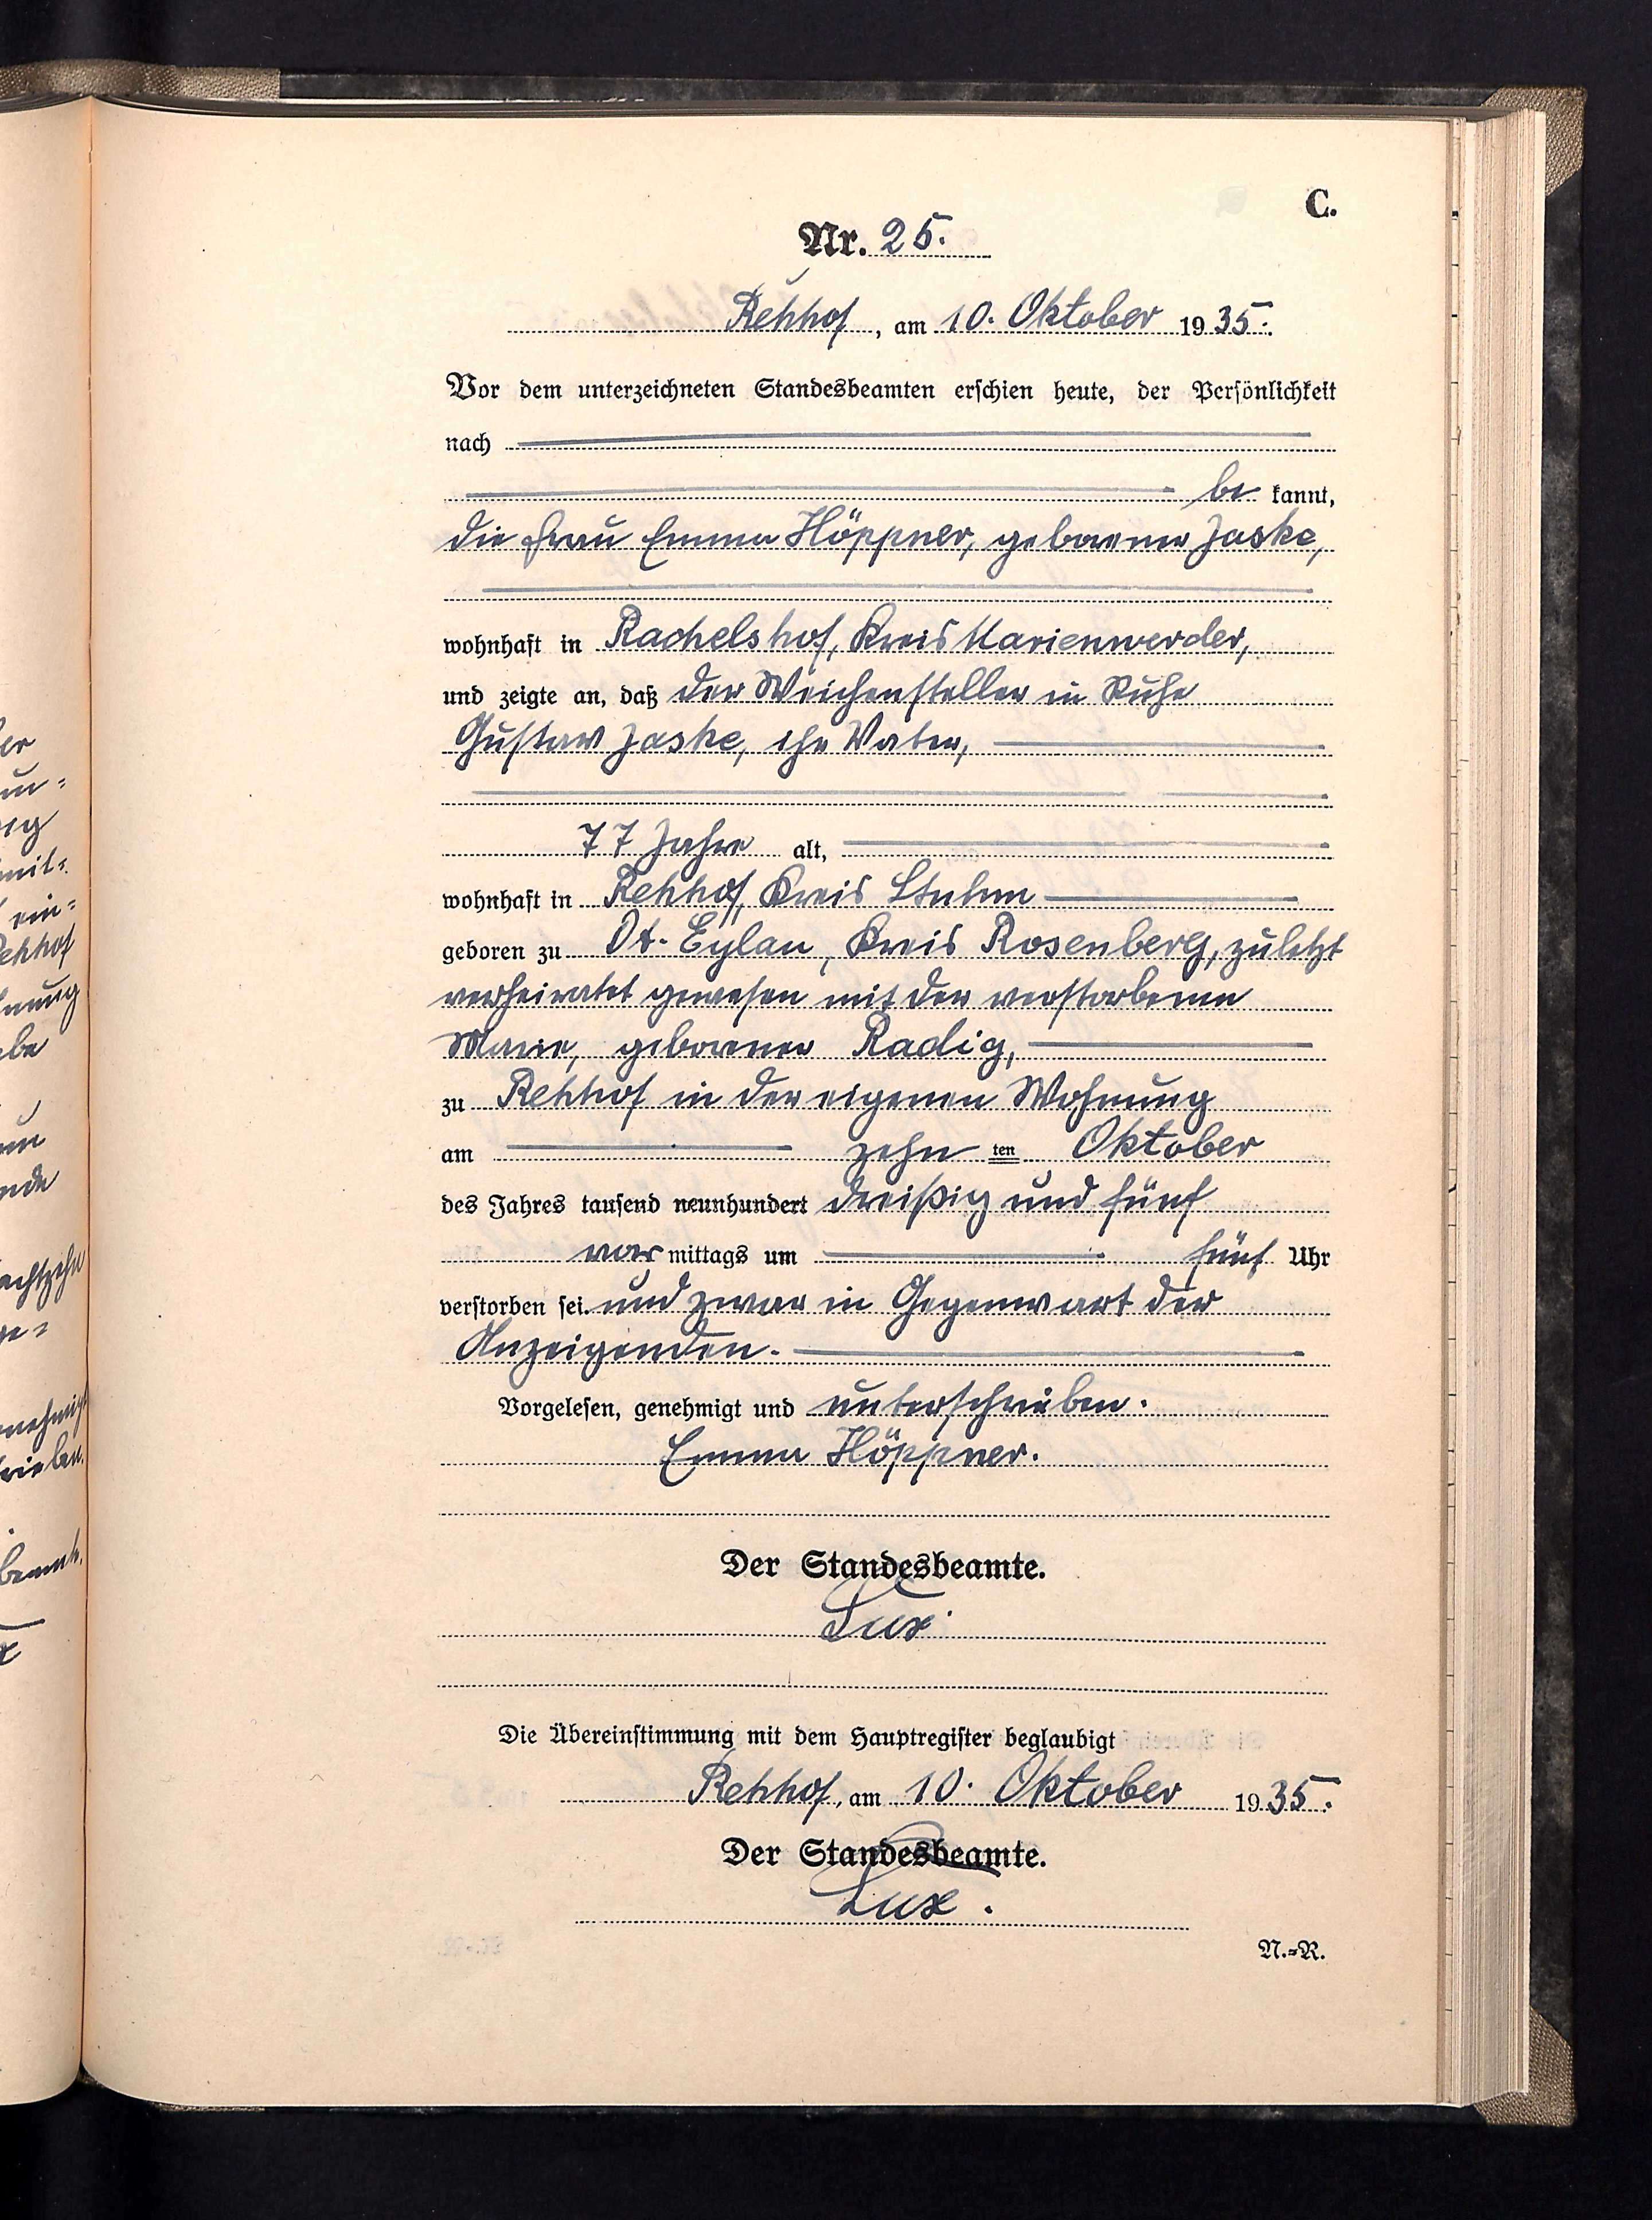 C.
Nr. 25.
Rehhof, am 10. Oktober 1935.
Vor dem unterzeichneten Standesbeamten erschien heute, der Persönlichkeit
nach
be kannt,
die Frau Emma Höppner, geborene Jaske,
wohnhaft in Rachelshof, Kreis Marienwerder,
und zeigte an, daß der Weichensteller in Ruhe
Gustav Jaske, ihr Vater,
77 Jahre alt,
wohnhaft in Rehhof, Kreis Stuhm
geboren zu Dt. Eylau, Kreis Rosenberg, zuletzt
verheiratet gewesen mit der verstorbenen
Marie, geborenen Radig,
zu Rehhof in der eigenen Wohnung
am zehn ten Oktober
des Jahres tausend neunhundert dreißig und fünf
vor mittags um fünf Uhr
verstorben sei und zwar in Gegenwart der
Anzeigenden.
Vorgelesen, genehmigt und unterschrieben.
Emma Höppner.
Der Standesbeamte.
Lux
Die Übereinstimmung mit dem Hauptregister beglaubigt
Rehhof, am 10. Oktober 1935.
Der Standesbeamte.
Lux.
N.=R.